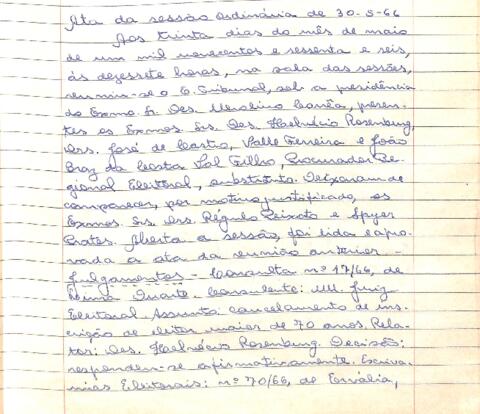 Ata da sessão ordinária de 30-5-66
Aos trinta dias do mês de maio
de um mil novecentos e sessenta e seis,
às dezessete horas, na sala das sessões,
reuniu-se o E. Tribunal, sob a presidência
do Exmo. Sr. Des. Merolino Corrêa, presen-
tes os Exmos. Srs. Des. Helvécio Rosenburg,
Drs. José de Castro, Valle Ferreira e João
Braz da Costa Val Filho, Procurador Re-
gional Eleitoral, substituto. Deixaram de
comparecer, por motivo justificado, os
Exmos. Srs. Drs. Régulo Peixoto e Spyer
Prates. Aberta a sessão, foi lida e apro-
vada a ata da reunião anterior -
Julgamentos - Consulta nº 17/66, de
Duarte. Consulente: M. Juiz
Eleitoral. Assunto: cancelamento de ins-
crição de eleitor maior de 70 anos. Rela-
tor: Des. Helvécio Rosenburg. Decisão:
respondeu-se afirmativamente. Escriva-
nias Eleitorais: nº 70/66, de Ervália,